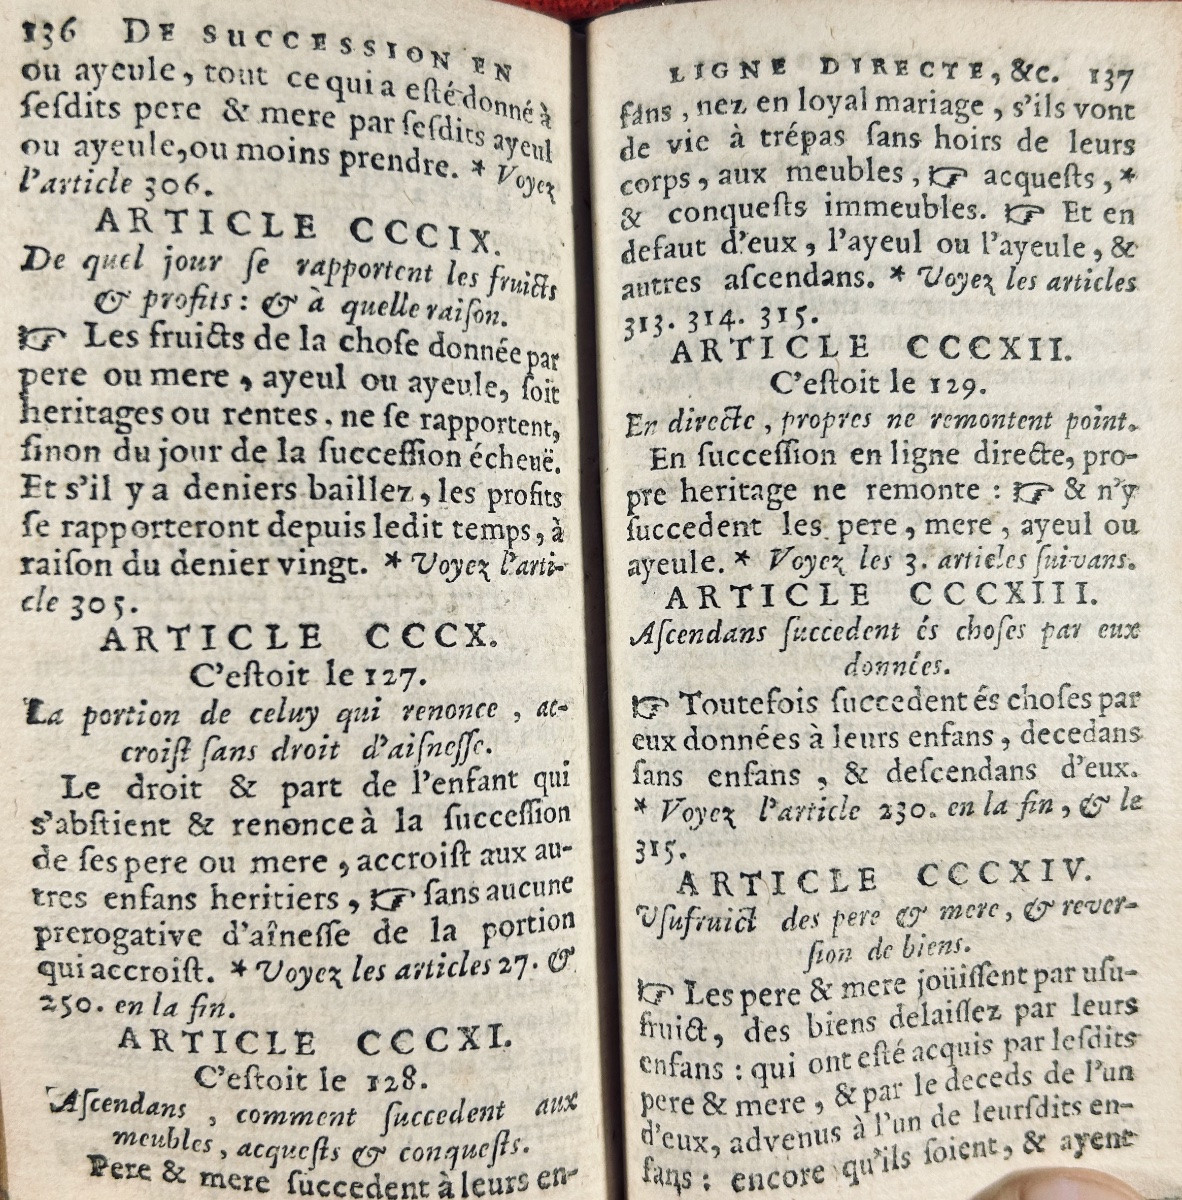 136 DE SUCCESSION EN
ou ayeule, tout ce qui a eſté donné à
ſeſdits pere & mere par ſeſdits ayeul
ou ayeule, ou moins prendre. * Voyez
l'article 306.
ARTICLE CCCIX.
De quel jour ſe rapportent les fruicts
& profits : & à quelle raiſon.
☞ Les fruicts de la choſe donnée par
pere ou mere, ayeul ou ayeule, ſoit
heritages ou rentes, ne ſe rapportent,
ſinon du jour de la ſucceſſion écheuë.
Et s'il y a deniers baillez, les profits
ſe rapporteront depuis ledit temps, à
raiſon du denier vingt. * Voyez l'arti-
cle 305.
ARTICLE CCCX.
C'eſtoit le 127.
La portion de celuy qui renonce, ac-
croiſt ſans droit d'aiſneſſe.
Le droit & part de l'enfant qui
s'abſtient & renonce à la ſucceſſion
de ſes pere ou mere, accroiſt aux au-
tres enfans heritiers, ☞ ſans aucune
prerogative d'aîneſſe de la portion
qui accroiſt. * Voyez les articles 27. &
250. en la fin.
ARTICLE CCCXI.
C'eſtoit le 128.
Aſcendans, comment ſuccedent aux
meubles, acqueſts & conqueſts.
Pere & mere ſuccedent à leurs en-
LIGNE DIRECTE, &c. 137
fans, nez en loyal mariage, s'ils vont
de vie à trépas ſans hoirs de leurs
corps, aux meubles, ☞ acqueſts, *
& conqueſts immeubles. ☞ Et en
defaut d'eux, l'ayeul ou l'ayeule, &
autres aſcendans. * Voyez les articles
313. 314. 315.
ARTICLE CCCXII.
C'eſtoit le 129.
En directe, propres ne remontent point.
En ſucceſſion en ligne directe, pro-
pre heritage ne remonte : ☞ & n'y
ſuccedent les pere, mere, ayeul ou
ayeule. * Voyez les 3. articles ſuivans.
ARTICLE CCCXIII.
Aſcendans ſuccedent és choſes par eux
données.
☞ Toutefois ſuccedent és choſes par
eux données à leurs enfans, decedans
ſans enfans, & deſcendans d'eux.
* Voyez l'article 230. en la fin, & le
315.
ARTICLE CCCXIV.
Uſufruict des pere & mere, & rever-
ſion de biens.
☞ Les pere & mere joüiſſent par uſu-
fruict, des biens delaiſſez par leurs
enfans : qui ont eſté acquis par leſdits
pere & mere, & par le deceds de l'un
d'eux, advenus à l'un de leurſdits en-
fans : encore qu'ils ſoient, & ayent